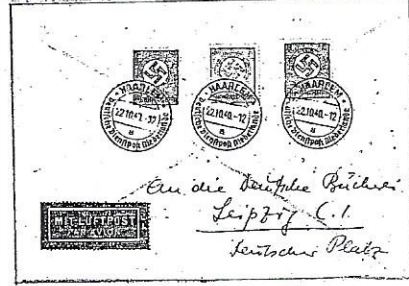 HAARLEM
22.10.40.-12
Deutsche Dienstpost Niederlande
a
HAARLEM
22.10.40.-12
Deutsche Dienstpost Niederlande
a
HAARLEM
22.10.40.-12
Deutsche Dienstpost Niederlande
a
An die Deutsche Bücherei
Leipzig C.1.
Deutscher Platz
MIT LUFTPOST
PAR AVION